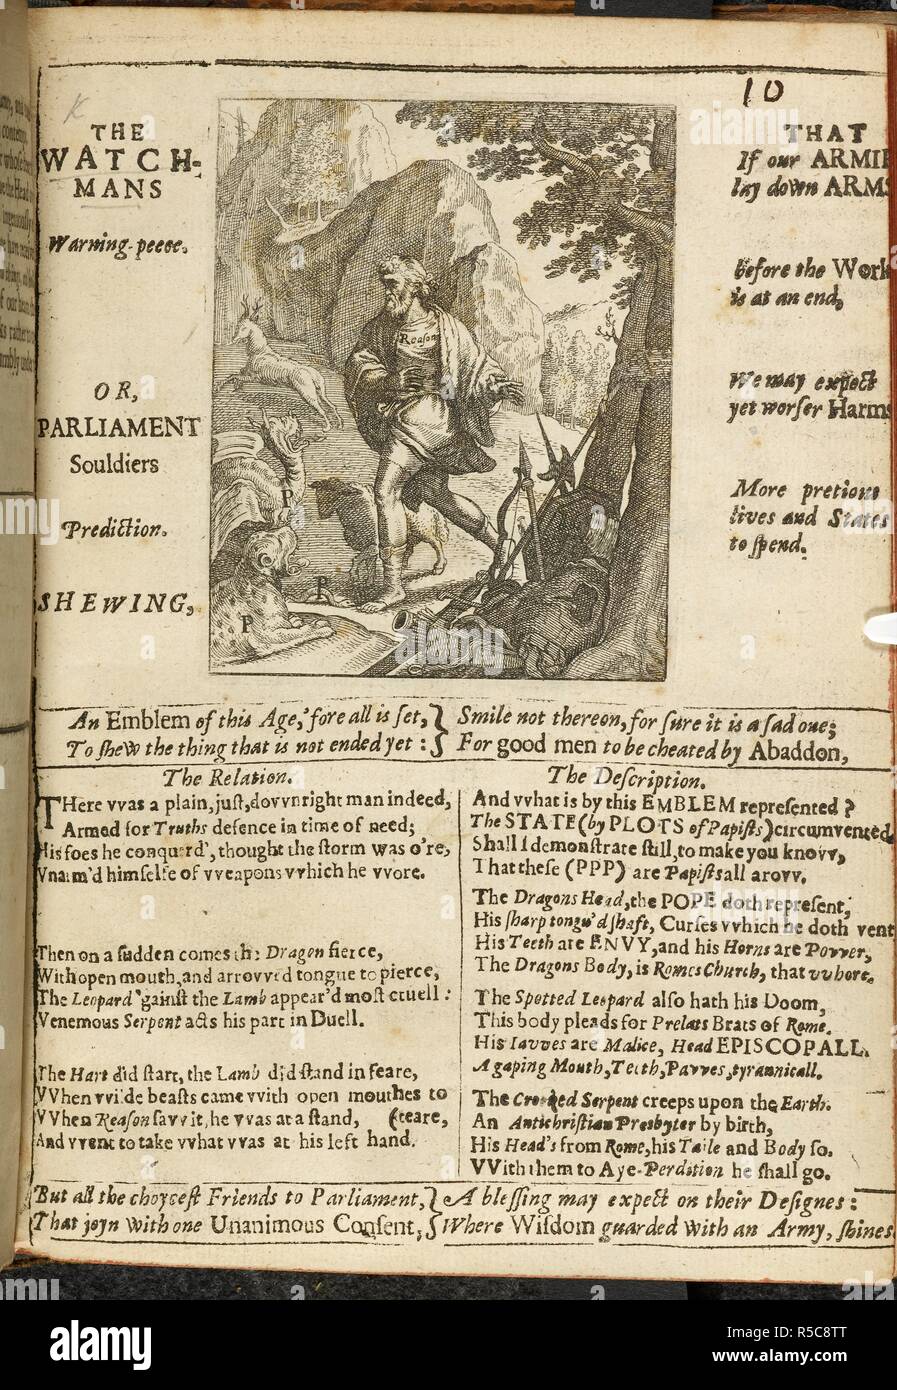 10
THE
WATCH-
MANS
Warning-peece.
OR,
PARLIAMENT
Souldiers
Prediction.
SHEWING,
THAT
If our ARMIE
lay down ARMS
before the Work
is at an end,
We may expect
yet worser Harms
More pretious
lives and States
to spend.
Reason
P
P
P
An Emblem of this Age, 'fore all is set,
To shew the thing that is not ended yet:
Smile not thereon, for sure it is a sad one;
For good men to be cheated by Abaddon,
The Relation.
THere vvas a plain, just, dovvnright man indeed,
Armed for Truths defence in time of need;
His foes he conquerd', thought the storm was o're,
Vnarm'd himselfe of vveapons vvhich he vvore.
Then on a sudden comes the Dragon fierce,
With open mouth, and arrovv'd tongue to pierce,
The Leopard 'gainst the Lamb appear'd most cruell:
Venemous Serpent acts his part in Duell.
The Hart did start, the Lamb did stand in feare,
VVhen vvilde beasts came vvith open mouthes to
VVhen Reason savv it, he vvas at a stand, (teare,
And vvent to take vvhat vvas at his left hand.
The Description.
And vvhat is by this EMBLEM represented?
The STATE (by PLOTS of Papists) circumvented,
Shall I demonstrate still, to make you knovv,
That these (PPP) are Papists all arovv.
The Dragons Head, the POPE doth represent;
His sharp tongu'd shaft, Curses vvhich he doth vent
His Teeth are ENVY, and his Horns are Povver,
The Dragons Body, is Romes Church, that vvhore.
The Spotted Leopard also hath his Doom,
This body pleads for Prelats Brats of Rome.
His Iavves are Malice, Head EPISCOPALL.
A gaping Mouth, Teeth, Pavves, tyrannicall.
The Crooked Serpent creeps upon the Earth.
An Antichristian Presbyter by birth,
His Head's from Rome, his Taile and Body so.
VVith them to Aye-Perdition he shall go.
But all the choycest Friends to Parliament,
That joyn with one Unanimous Consent,
A blessing may expect on their Designes:
Where Wisdom guarded with an Army, shines
alamy
Image ID: R5C8TT
www.alamy.com